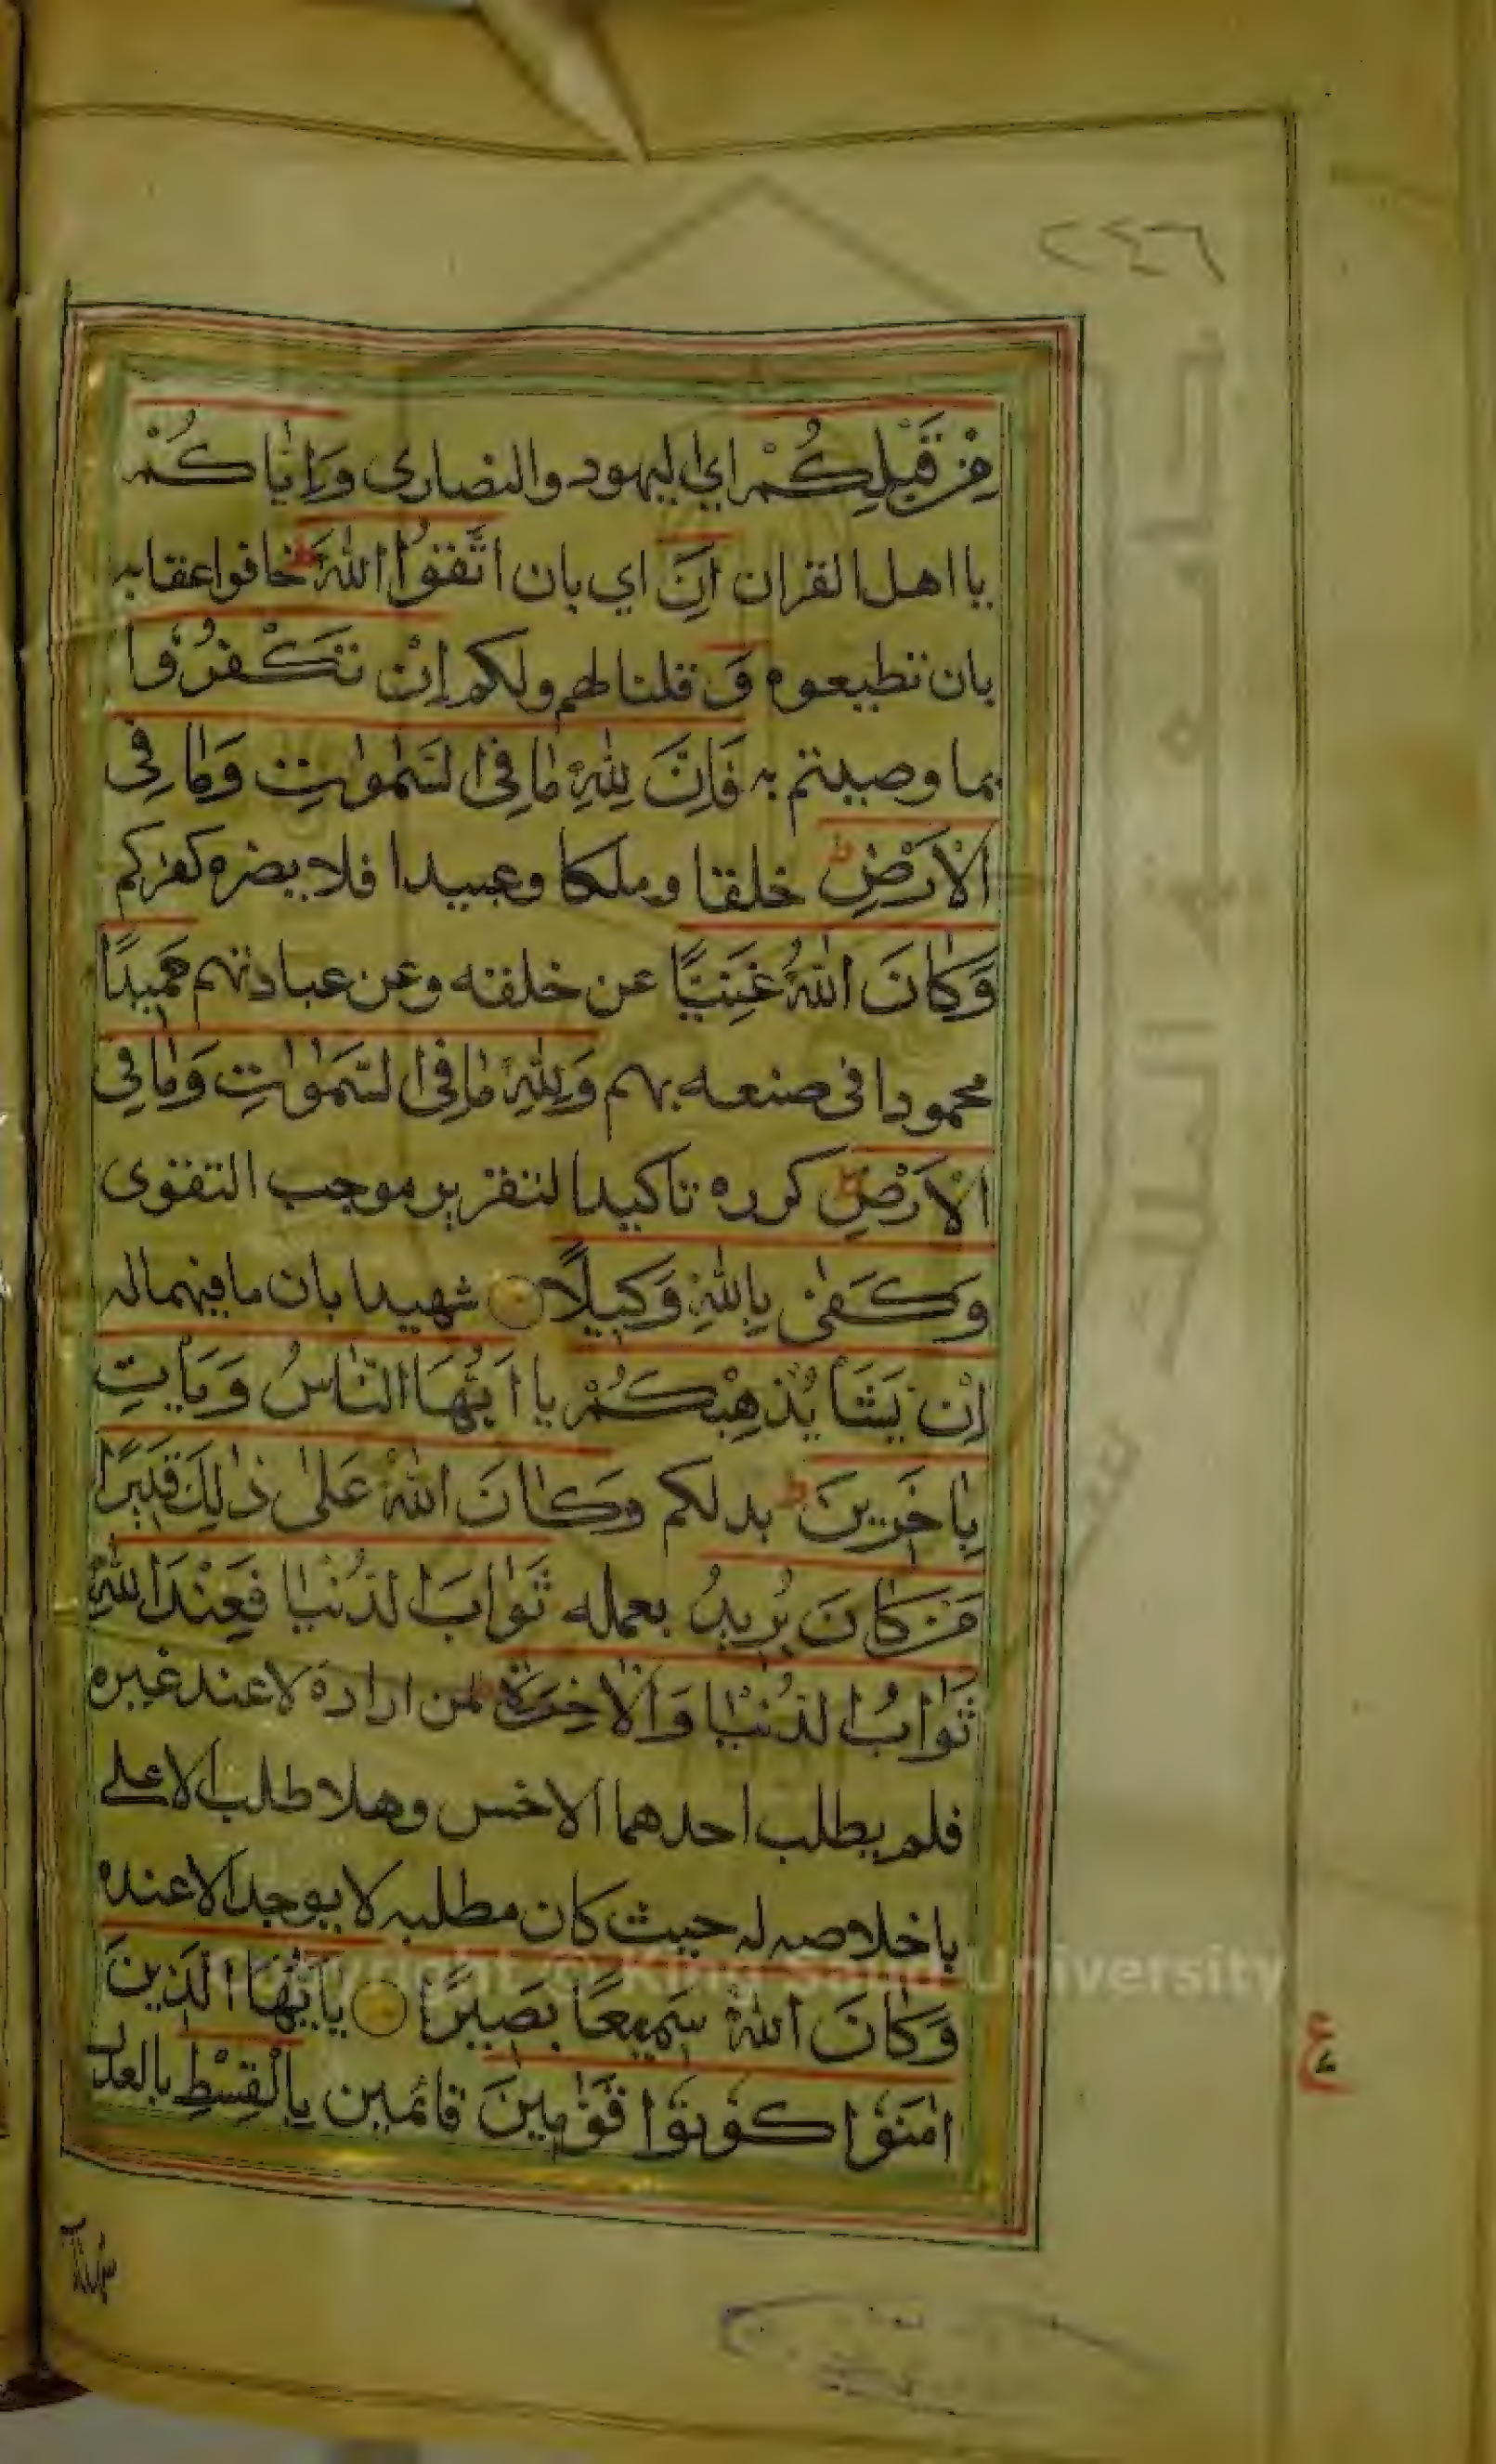 ٢٤٦
مِنْ قَبْلِكُمْ اي اليهود والنصارى وَاِيَّاكُمْ
يا اهل القران اَنِ اي بان اتَّقُوا اللّٰهَ ط خافوا عقابه
بان تطيعوه وَ قلنا لهم ولكم اِنْ تَكْفُرُوا
بما وصيتم به فَاِنَّ لِلّٰهِ مَا فِي السَّمٰوٰتِ وَمَا فِي
الْاَرْضِ ط خلقا وملكا وعبيدا فلا يضره كفركم
وَكَانَ اللّٰهُ غَنِيًّا عن خلقه وعن عبادتهم حَمِيدًا
محمودا في صنعه بهم وَلِلّٰهِ مَا فِي السَّمٰوٰتِ وَمَا فِي
الْاَرْضِ ط كرره تاكيدا لتقرير موجب التقوى
وَكَفٰى بِاللّٰهِ وَكِيلًا شهيدا بان ما فيهما له
اِنْ يَشَأْ يُذْهِبْكُمْ يا اَيُّهَا النَّاسُ وَيَأْتِ
بِاٰخَرِينَ ط بدلكم وَكَانَ اللّٰهُ عَلٰى ذٰلِكَ قَدِيرًا
مَنْ كَانَ يُرِيدُ بعمله ثَوَابَ الدُّنْيَا فَعِنْدَ اللّٰهِ
ثَوَابُ الدُّنْيَا وَالْاٰخِرَةِ ط لمن اراده لا عند غيره
فلم يطلب احدهما الاخس وهلا طلب الاعلى
باخلاصه له حيث كان مطلبه لا يوجد الا عنده
وَكَانَ اللّٰهُ سَمِيعًا بَصِيرًا يٰاَيُّهَا الَّذِينَ
اٰمَنُوا كُونُوا قَوّٰمِينَ قائمين بِالْقِسْطِ بالعدل
ع
شهداء
جامعة الملك سعود
Copyright © King Saud University